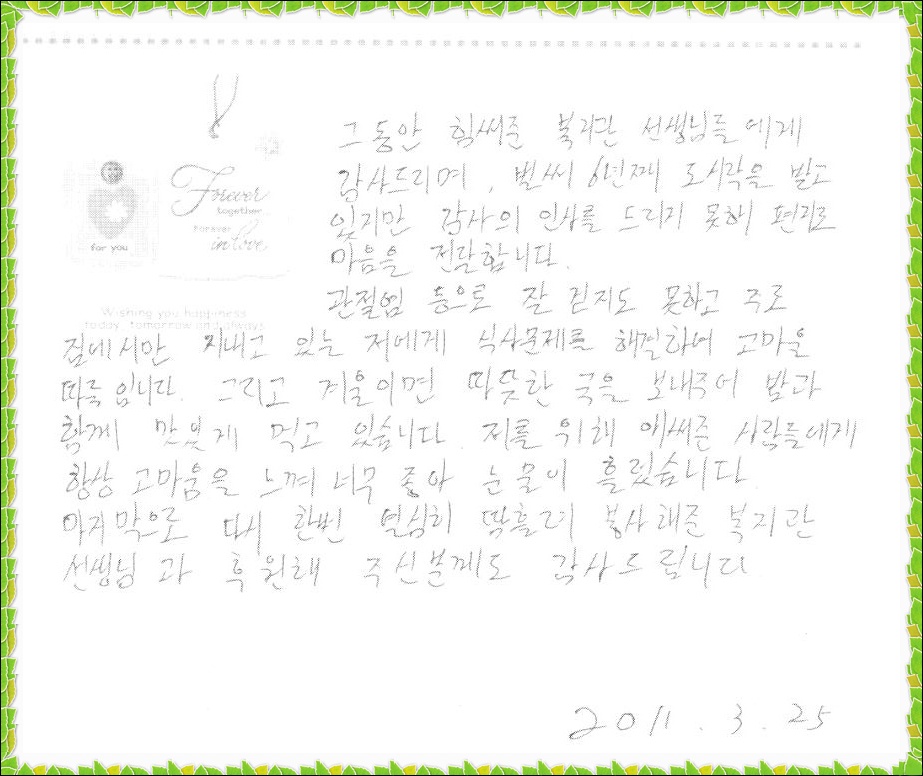 Forever
together
Forever
in love
for you
Wishing you happiness
today, tomorrow and always
그동안 힘써준 복지관 선생님들에게
감사드리며, 벌써 6년째 도시락을 받고
있지만 감사의 인사를 드리지 못해 편지로
마음을 전달합니다.
관절염 등으로 잘 걷지도 못하고 주로
집에서만 지내고 있는 저에게 식사문제를 해결하여 고마울
따름입니다. 그리고 겨울이면 따뜻한 국을 보내주어 밥과
함께 맛있게 먹고 있습니다. 저를 위해 애써준 사람들에게
항상 고마움을 느껴 너무 좋아 눈물이 흘렀습니다.
마지막으로 다시 한번 열심히 땀흘려 봉사해준 복지관
선생님과 후원해 주신분께도 감사드립니다
2011. 3. 25